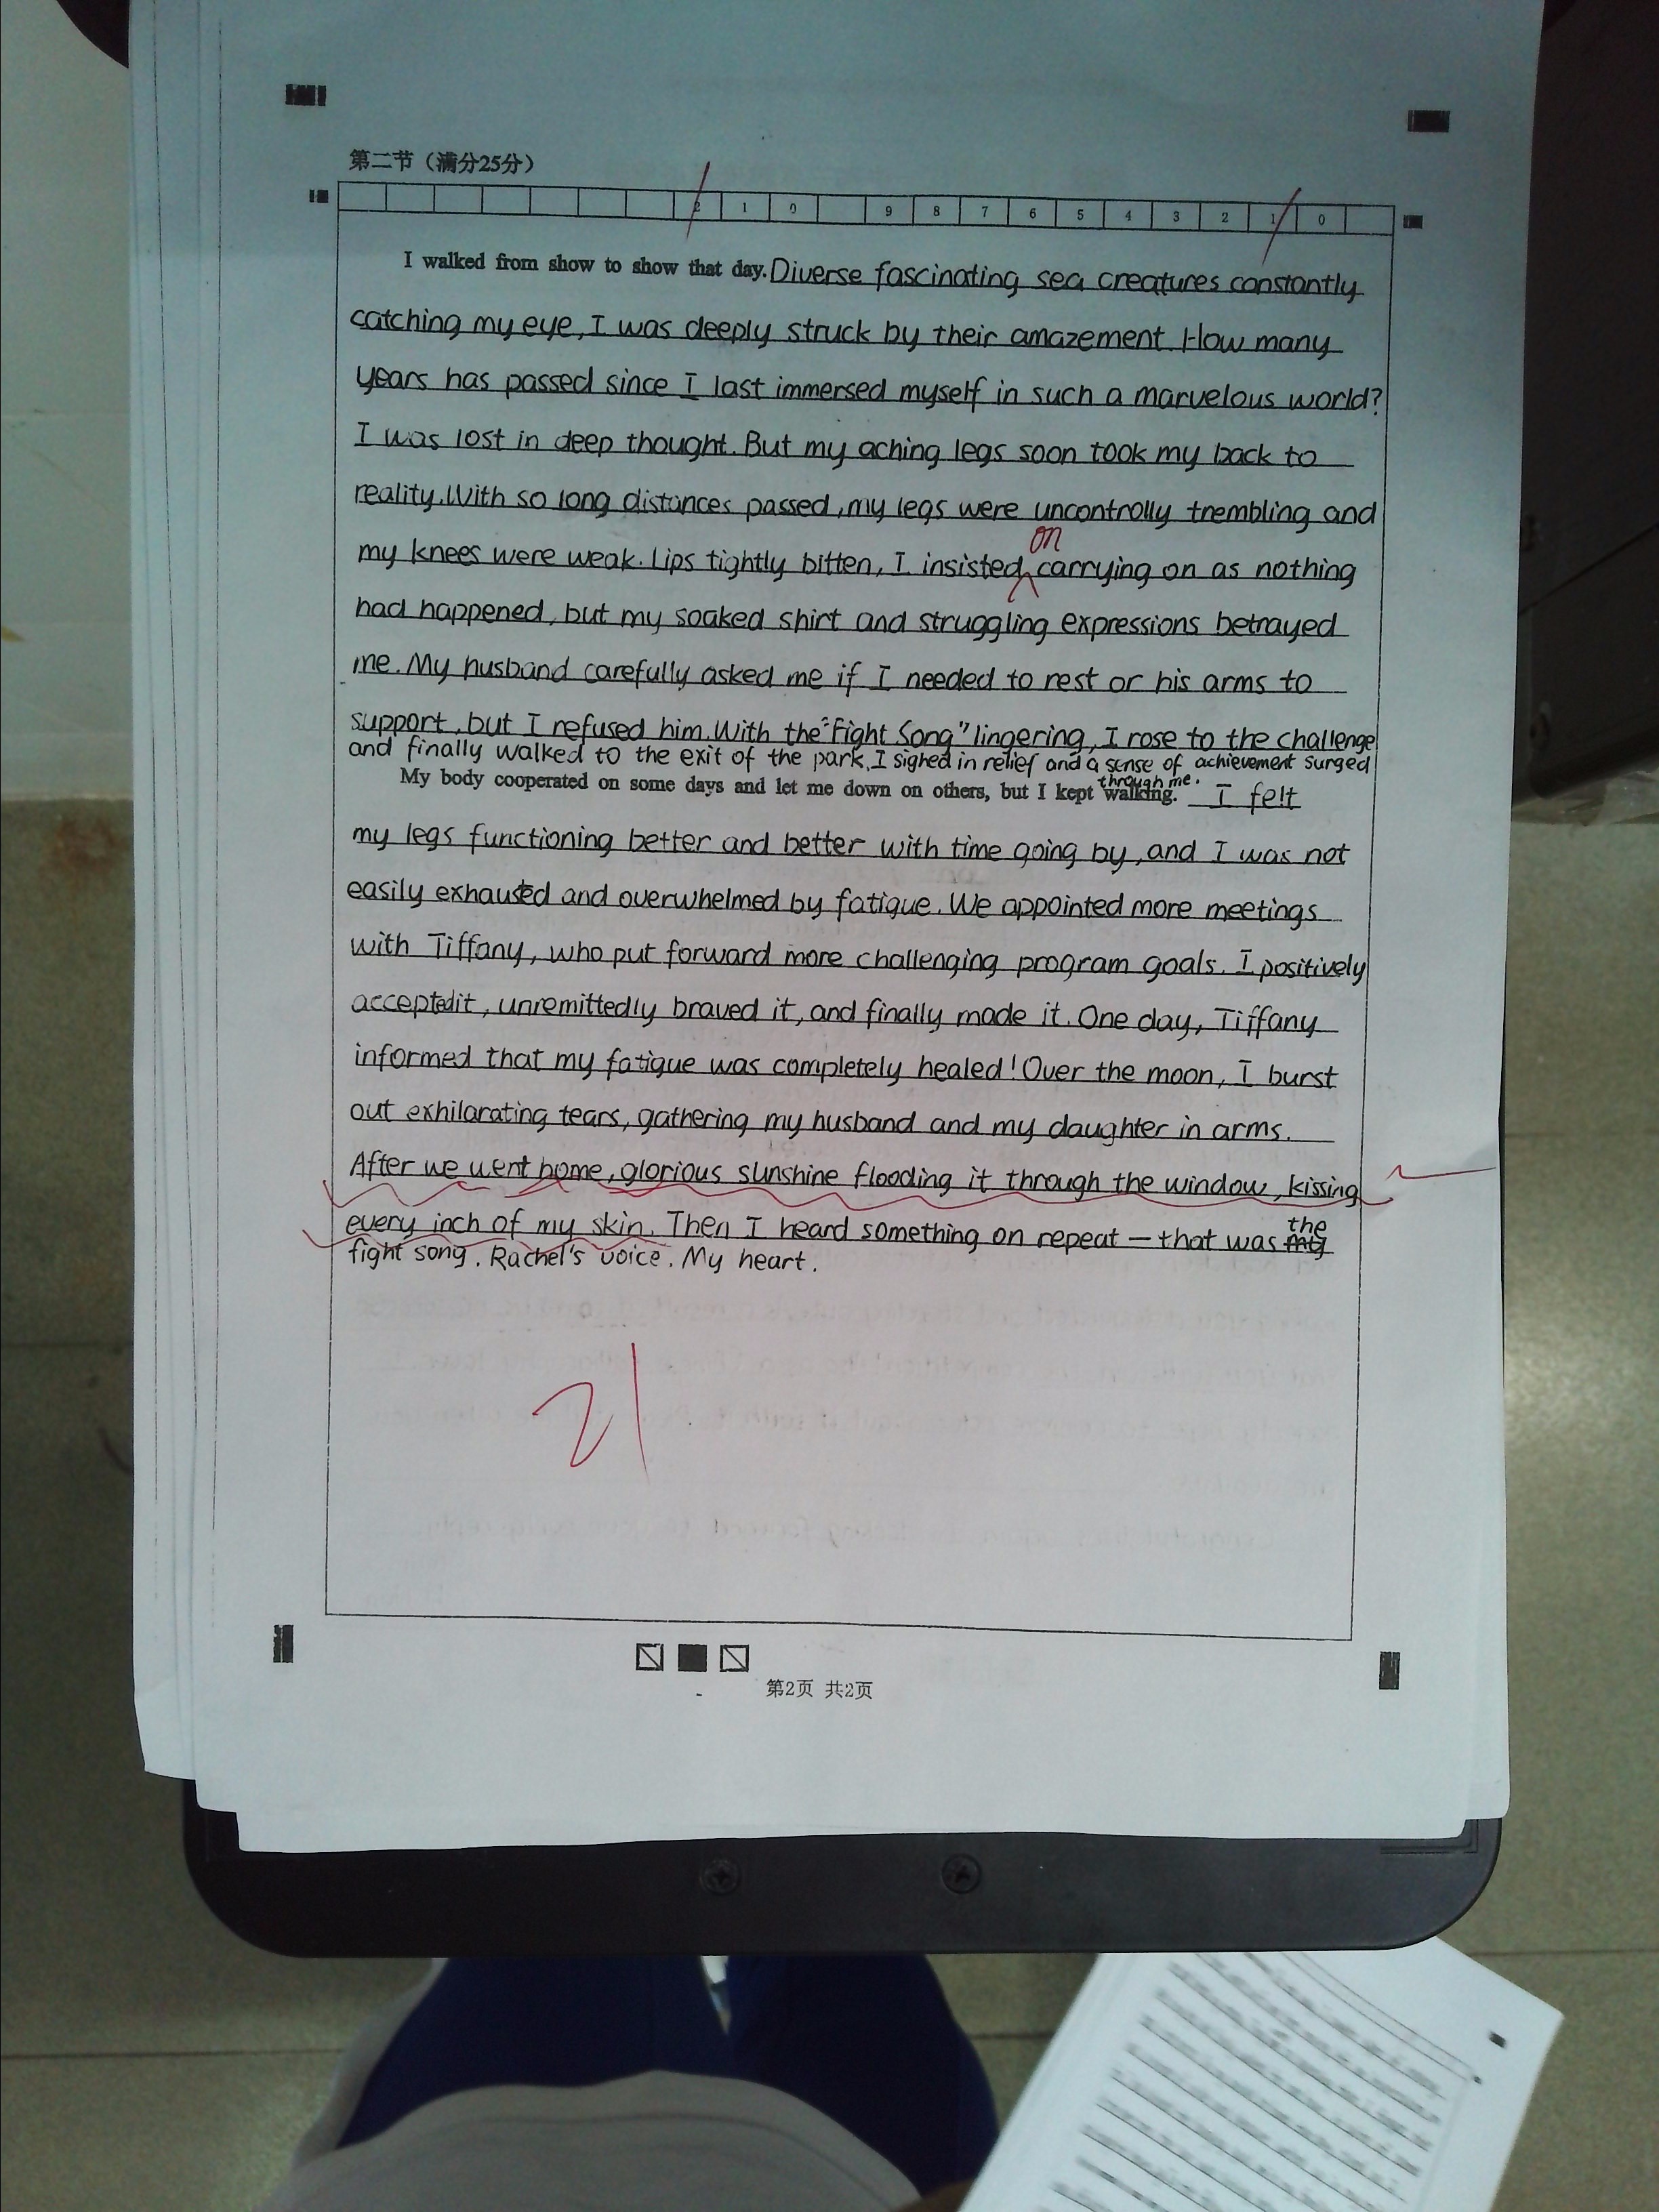 第二节（满分25分）
2 1 0 9 8 7 6 5 4 3 2 1 0
I walked from show to show that day. Diverse fascinating sea creatures constantly
catching my eye, I was deeply struck by their amazement. How many
years has passed since I last immersed myself in such a marvelous world?
I was lost in deep thought. But my aching legs soon took my back to
reality. With so long distances passed, my legs were uncontrolly trembling and
on
my knees were weak. Lips tightly bitten, I insisted carrying on as nothing
had happened, but my soaked shirt and struggling expressions betrayed
me. My husband carefully asked me if I needed to rest or his arms to
support, but I refused him. With the "Fight Song" lingering, I rose to the challenge
and finally walked to the exit of the park. I sighed in relief and a sense of achievement surged
through me.
My body cooperated on some days and let me down on others, but I kept walking. I felt
my legs functioning better and better with time going by, and I was not
easily exhausted and overwhelmed by fatigue. We appointed more meetings
with Tiffany, who put forward more challenging program goals. I positively
accepted it, unremittedly braved it, and finally made it. One day, Tiffany
informed that my fatigue was completely healed! Over the moon, I burst
out exhilarating tears, gathering my husband and my daughter in arms.
After we went home, glorious sunshine flooding it through the window, kissing
every inch of my skin. Then I heard something on repeat — that was the
fight song. Rachel's voice. My heart.
21
第2页 共2页